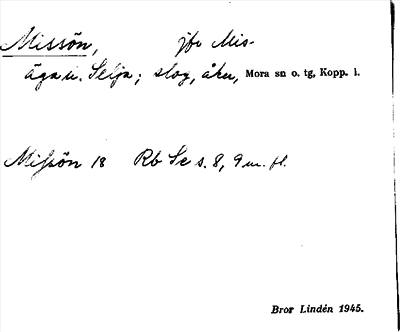 Missön, jfr Mis-
ägau. Selja; skog, åker, Mora sn o. tg, Kopp. l.
Missön 18 Rb Se s. 8, 9 m. fl.
Bror Lindén 1945.